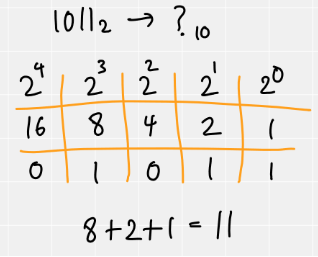 1011₂ → ?₁₀
2⁴ 2³ 2² 2¹ 2⁰
16 8 4 2 1
0 1 0 1 1
8+2+1 = 11